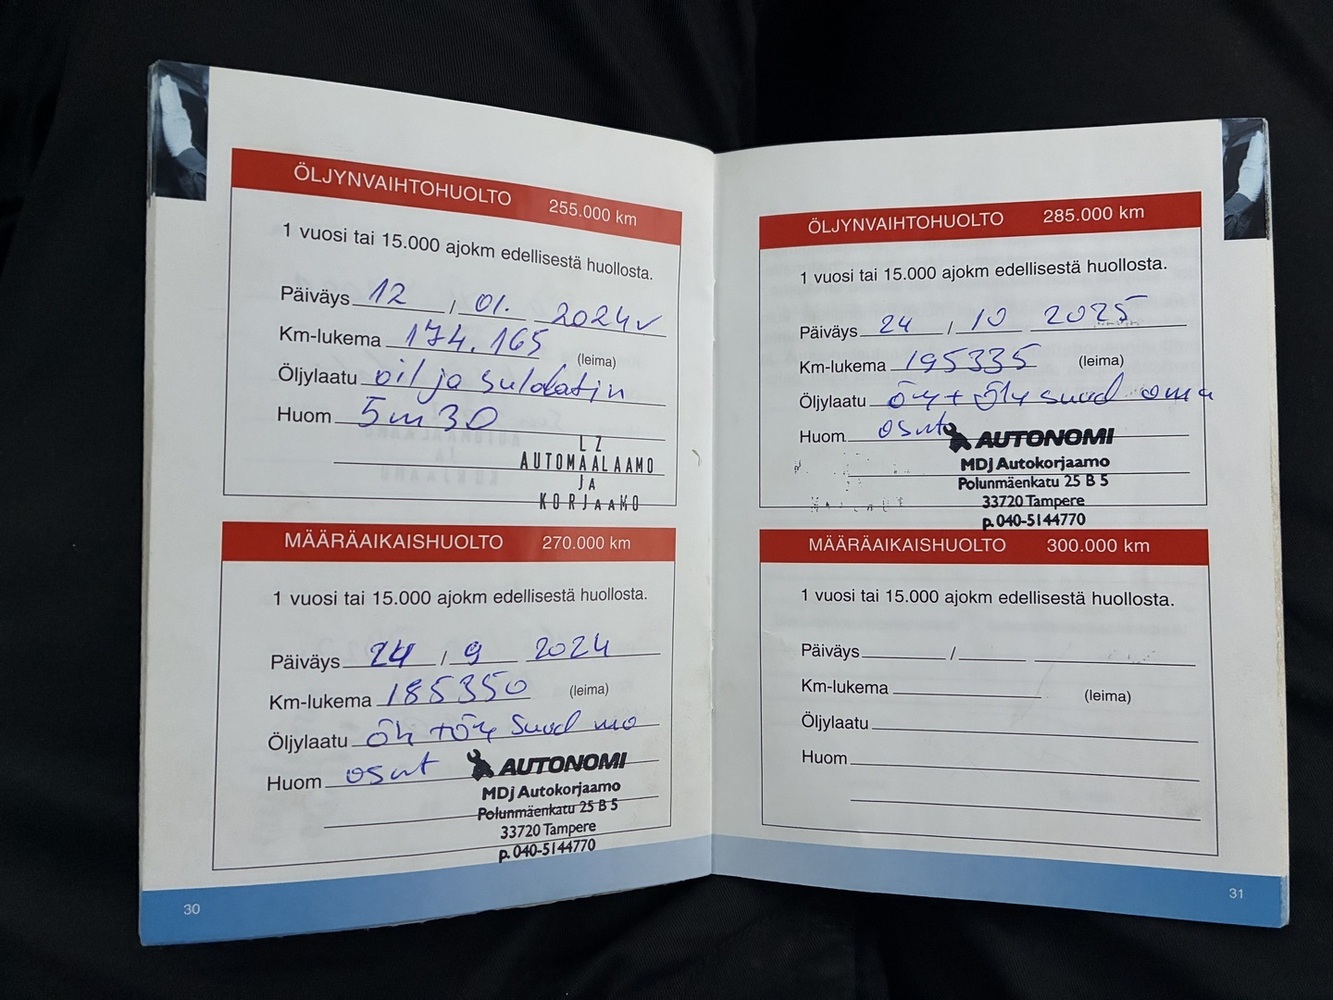 ÖLJYNVAIHTOHUOLTO 255.000 km
1 vuosi tai 15.000 ajokm edellisestä huollosta.
Päiväys 12 / 01. 2024v
Km-lukema 174.165 (leima)
Öljylaatu oil ja suldatin
Huom 5w30
LZ
AUTOMAALAAMO
JA
KORJAAMO
MÄÄRÄAIKAISHUOLTO 270.000 km
1 vuosi tai 15.000 ajokm edellisestä huollosta.
Päiväys 24 / 9 2024
Km-lukema 185350 (leima)
Öljylaatu
Huom osut
AUTONOMI
MDj Autokorjaamo
Polunmäenkatu 25 B 5
33720 Tampere
p. 040-5144770
30
ÖLJYNVAIHTOHUOLTO 285.000 km
1 vuosi tai 15.000 ajokm edellisestä huollosta.
Päiväys 24 / 10 2025
Km-lukema 195335 (leima)
Öljylaatu suod oma
Huom osut
AUTONOMI
MDj Autokorjaamo
Polunmäenkatu 25 B 5
33720 Tampere
p. 040-5144770
MÄÄRÄAIKAISHUOLTO 300.000 km
1 vuosi tai 15.000 ajokm edellisestä huollosta.
Päiväys /
Km-lukema (leima)
Öljylaatu
Huom
31